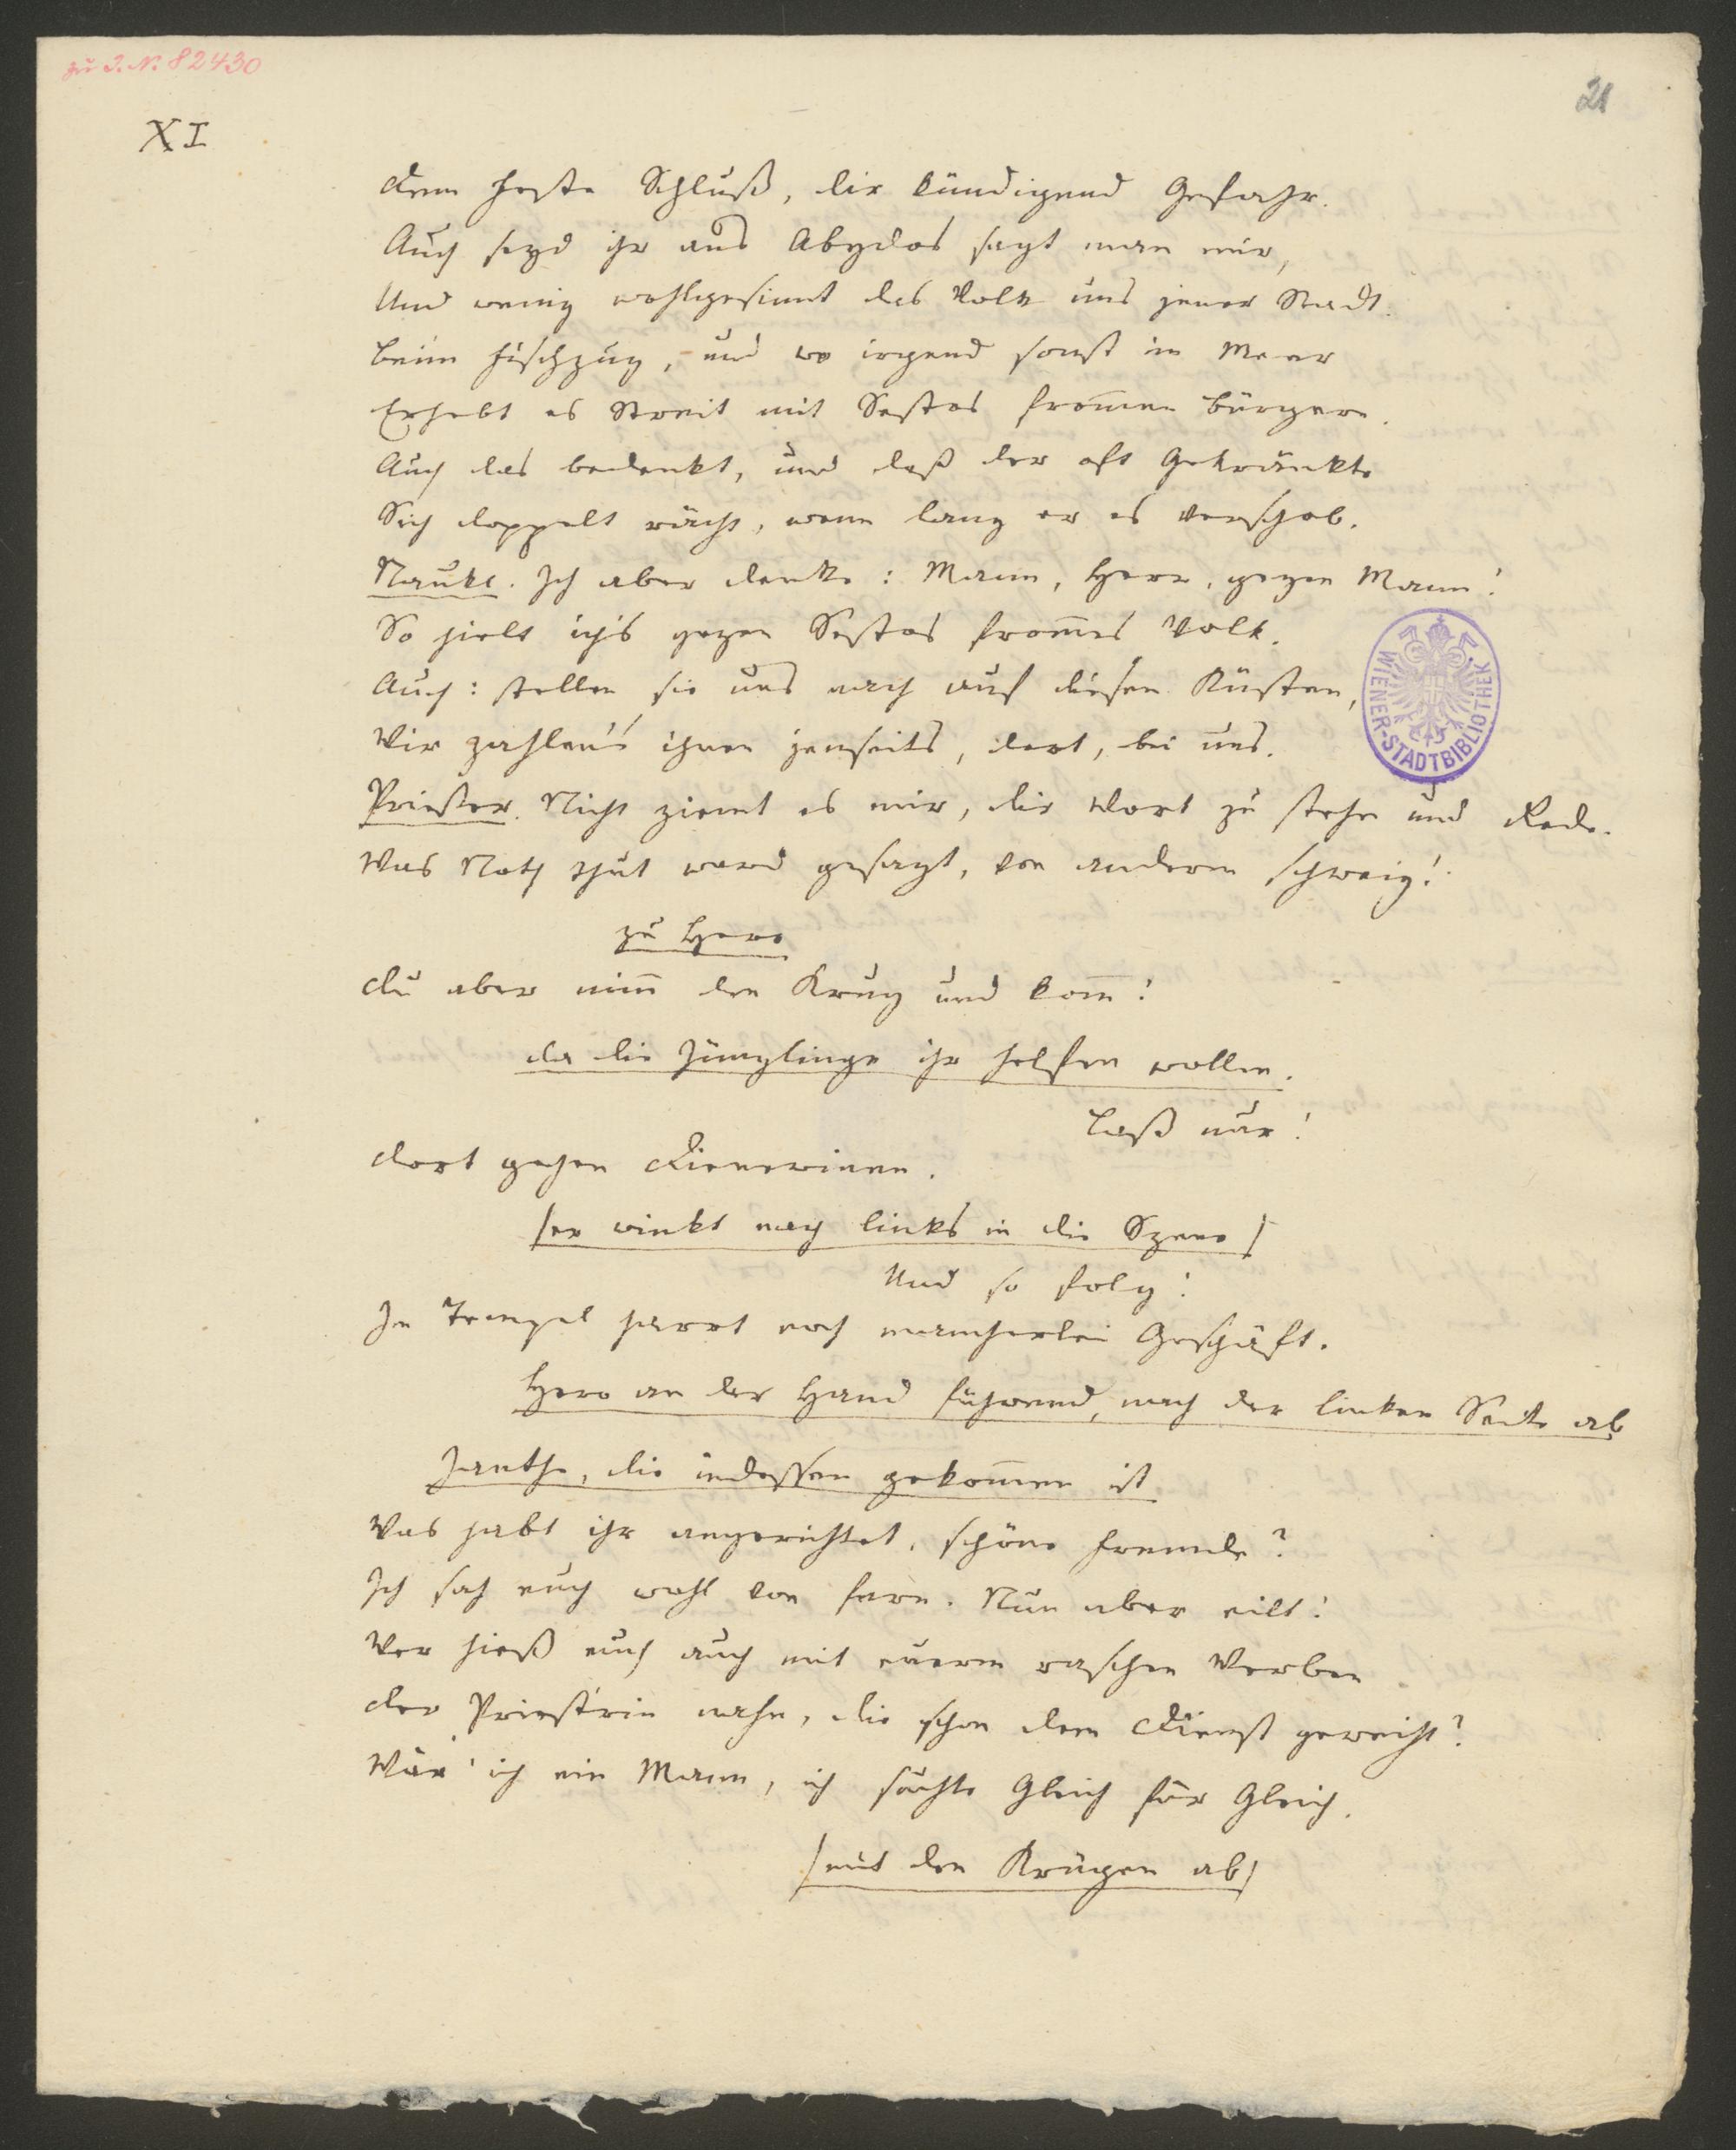 zu I. N. 82430
21
XI
Dem Feste Schluß, dir kündigend Gefahr.
Auch seyd ihr aus Abydos sagt man mir,
Und wenig wohlgesinnt das Volk uns jener Stadt.
Beim Fischzug, und wo irgend sonst im Meer
Erhebt es Streit mit Sestos frommen Bürgern.
Auch das bedenkt, und daß der oft Gekränkte
Sich doppelt rächt, wenn lang er es verschob.
Naukl. Ich aber denke: Mann, Herr, gegen Mann!
So hielt ich's gegen Sestos frommes Volk.
Auch: stellen sie uns nach auf diesen Küsten,
Wir zahlen's ihnen jenseits, dort, bei uns.
Priester. Nicht ziemt es mir, dir Wort zu stehn und Rede.
Was Noth thut ward gesagt, von anderm schweig!
zu Hero
Du aber nimm den Krug und komm!
da die Jünglinge ihr helfen wollen.
Laß nur!
Dort gehen Dienerinnen.
/er winkt nach links in die Szene/
Und so folg!
Im Tempel harrt noch mancherlei Geschäft.
Hero an der Hand führend, nach der linken Seite ab
Janthe, die indessen gekommen ist
Was habt ihr angerichtet, schöne Fremde?
Ich sah euch wohl von fern. Nun aber eilt!
Wer hieß euch auch mit euerm raschen Werben
Der Priest'rin nahn, die schon dem Dienst geweiht?
Wär' ich ein Mann, ich suchte Gleich für Gleich.
/mit den Krügen ab/
WIENER-STADTBIBLIOTHEK